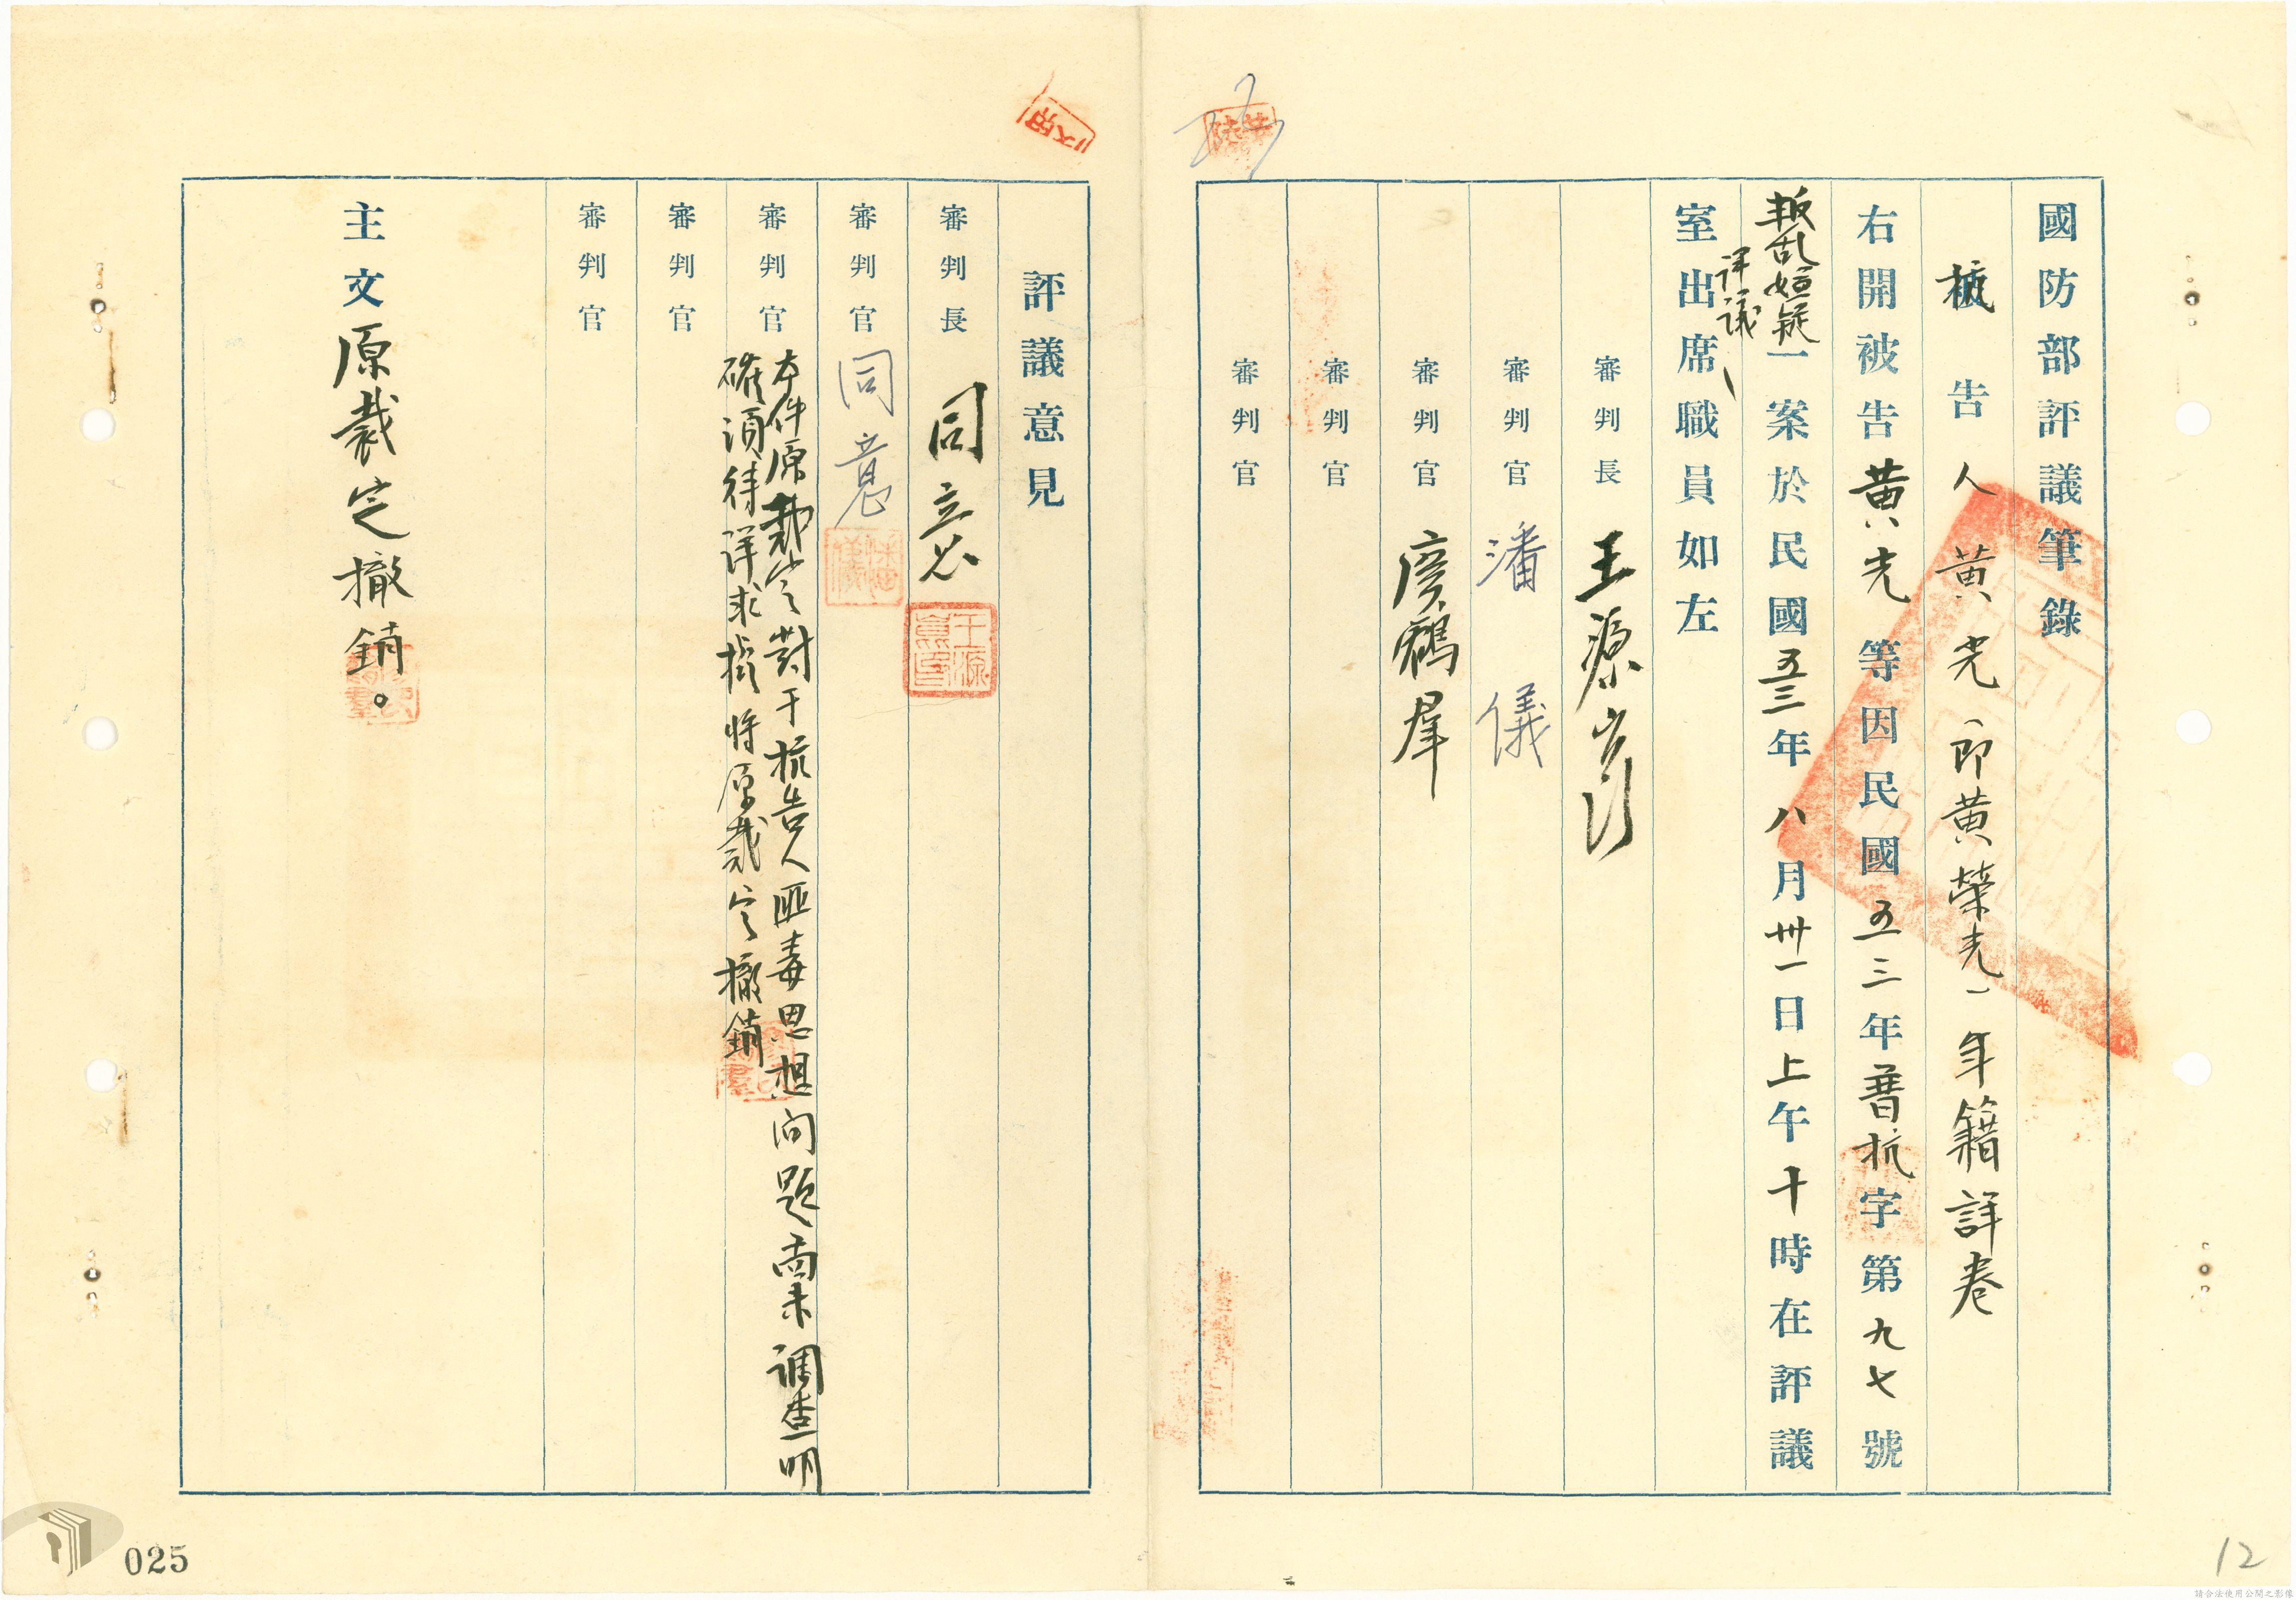 國防部評議筆錄
被告人黃光(即黃榮光)年籍詳卷
右開被告黃光等因民國五三年普抗字第九七號
叛乱嫌疑一案於民國五三年八月卅一日上午十時在評議
評議
室出席職員如左
審判長 王源
審判官 潘儀
審判官 廖鶴羣
審判官
審判官
評議意見
審判長 同意
審判官 同意
審判官 本件原裁定對于抗告人匪毒思想问題尚未调查明
確須待詳求擬將原裁定撤銷
審判官
審判官
主文 原裁定撤銷。
025
12
請合法使用公開之影像